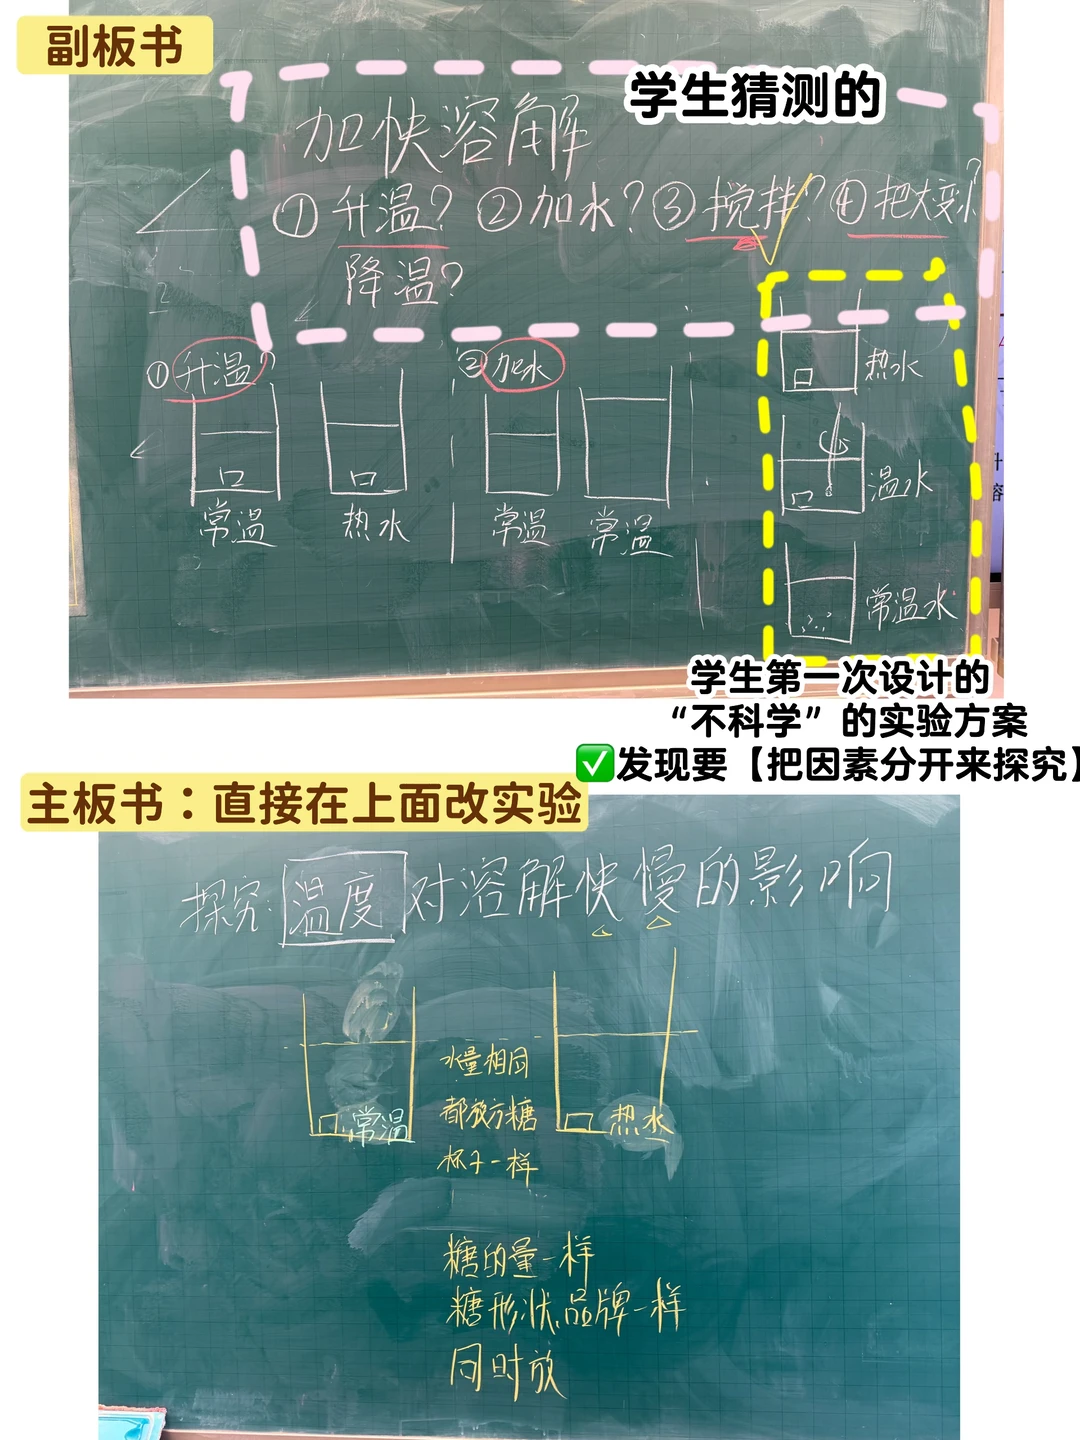 副板书
学生猜测的
加快溶解
①升温？②加水？③搅拌？④把大变小？
降温？
①升温？
②加水
常温
热水
常温
常温
热水
温水
常温水
学生第一次设计的
“不科学”的实验方案
✅发现要【把因素分开来探究】
主板书：直接在上面改实验
探究：温度对溶解快慢的影响
水量相同
都放方糖
杯子一样
常温
热水
糖的量一样
糖形状、品牌一样
同时放